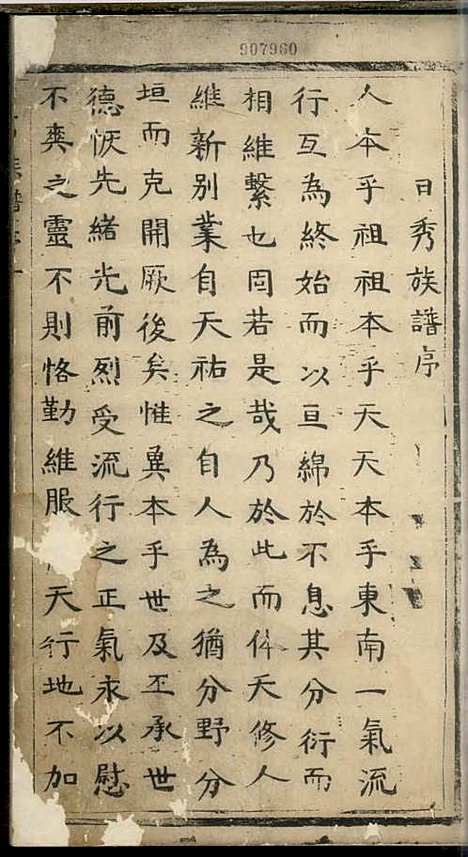 907960
日秀族譜序
人本乎祖祖本乎天天本乎東南一氣流
行互為終始而以亘綿於不息其分衍而
相維繫也罔若是哉乃於此而体天修人
維新別業自天祐之自人為之猶分野分
垣而克開厥後矣惟異本乎世及丕承世
德恢先緒光前烈受流行之正氣永以慰
不爽之靈不則恪勤維服天行地不加
族譜